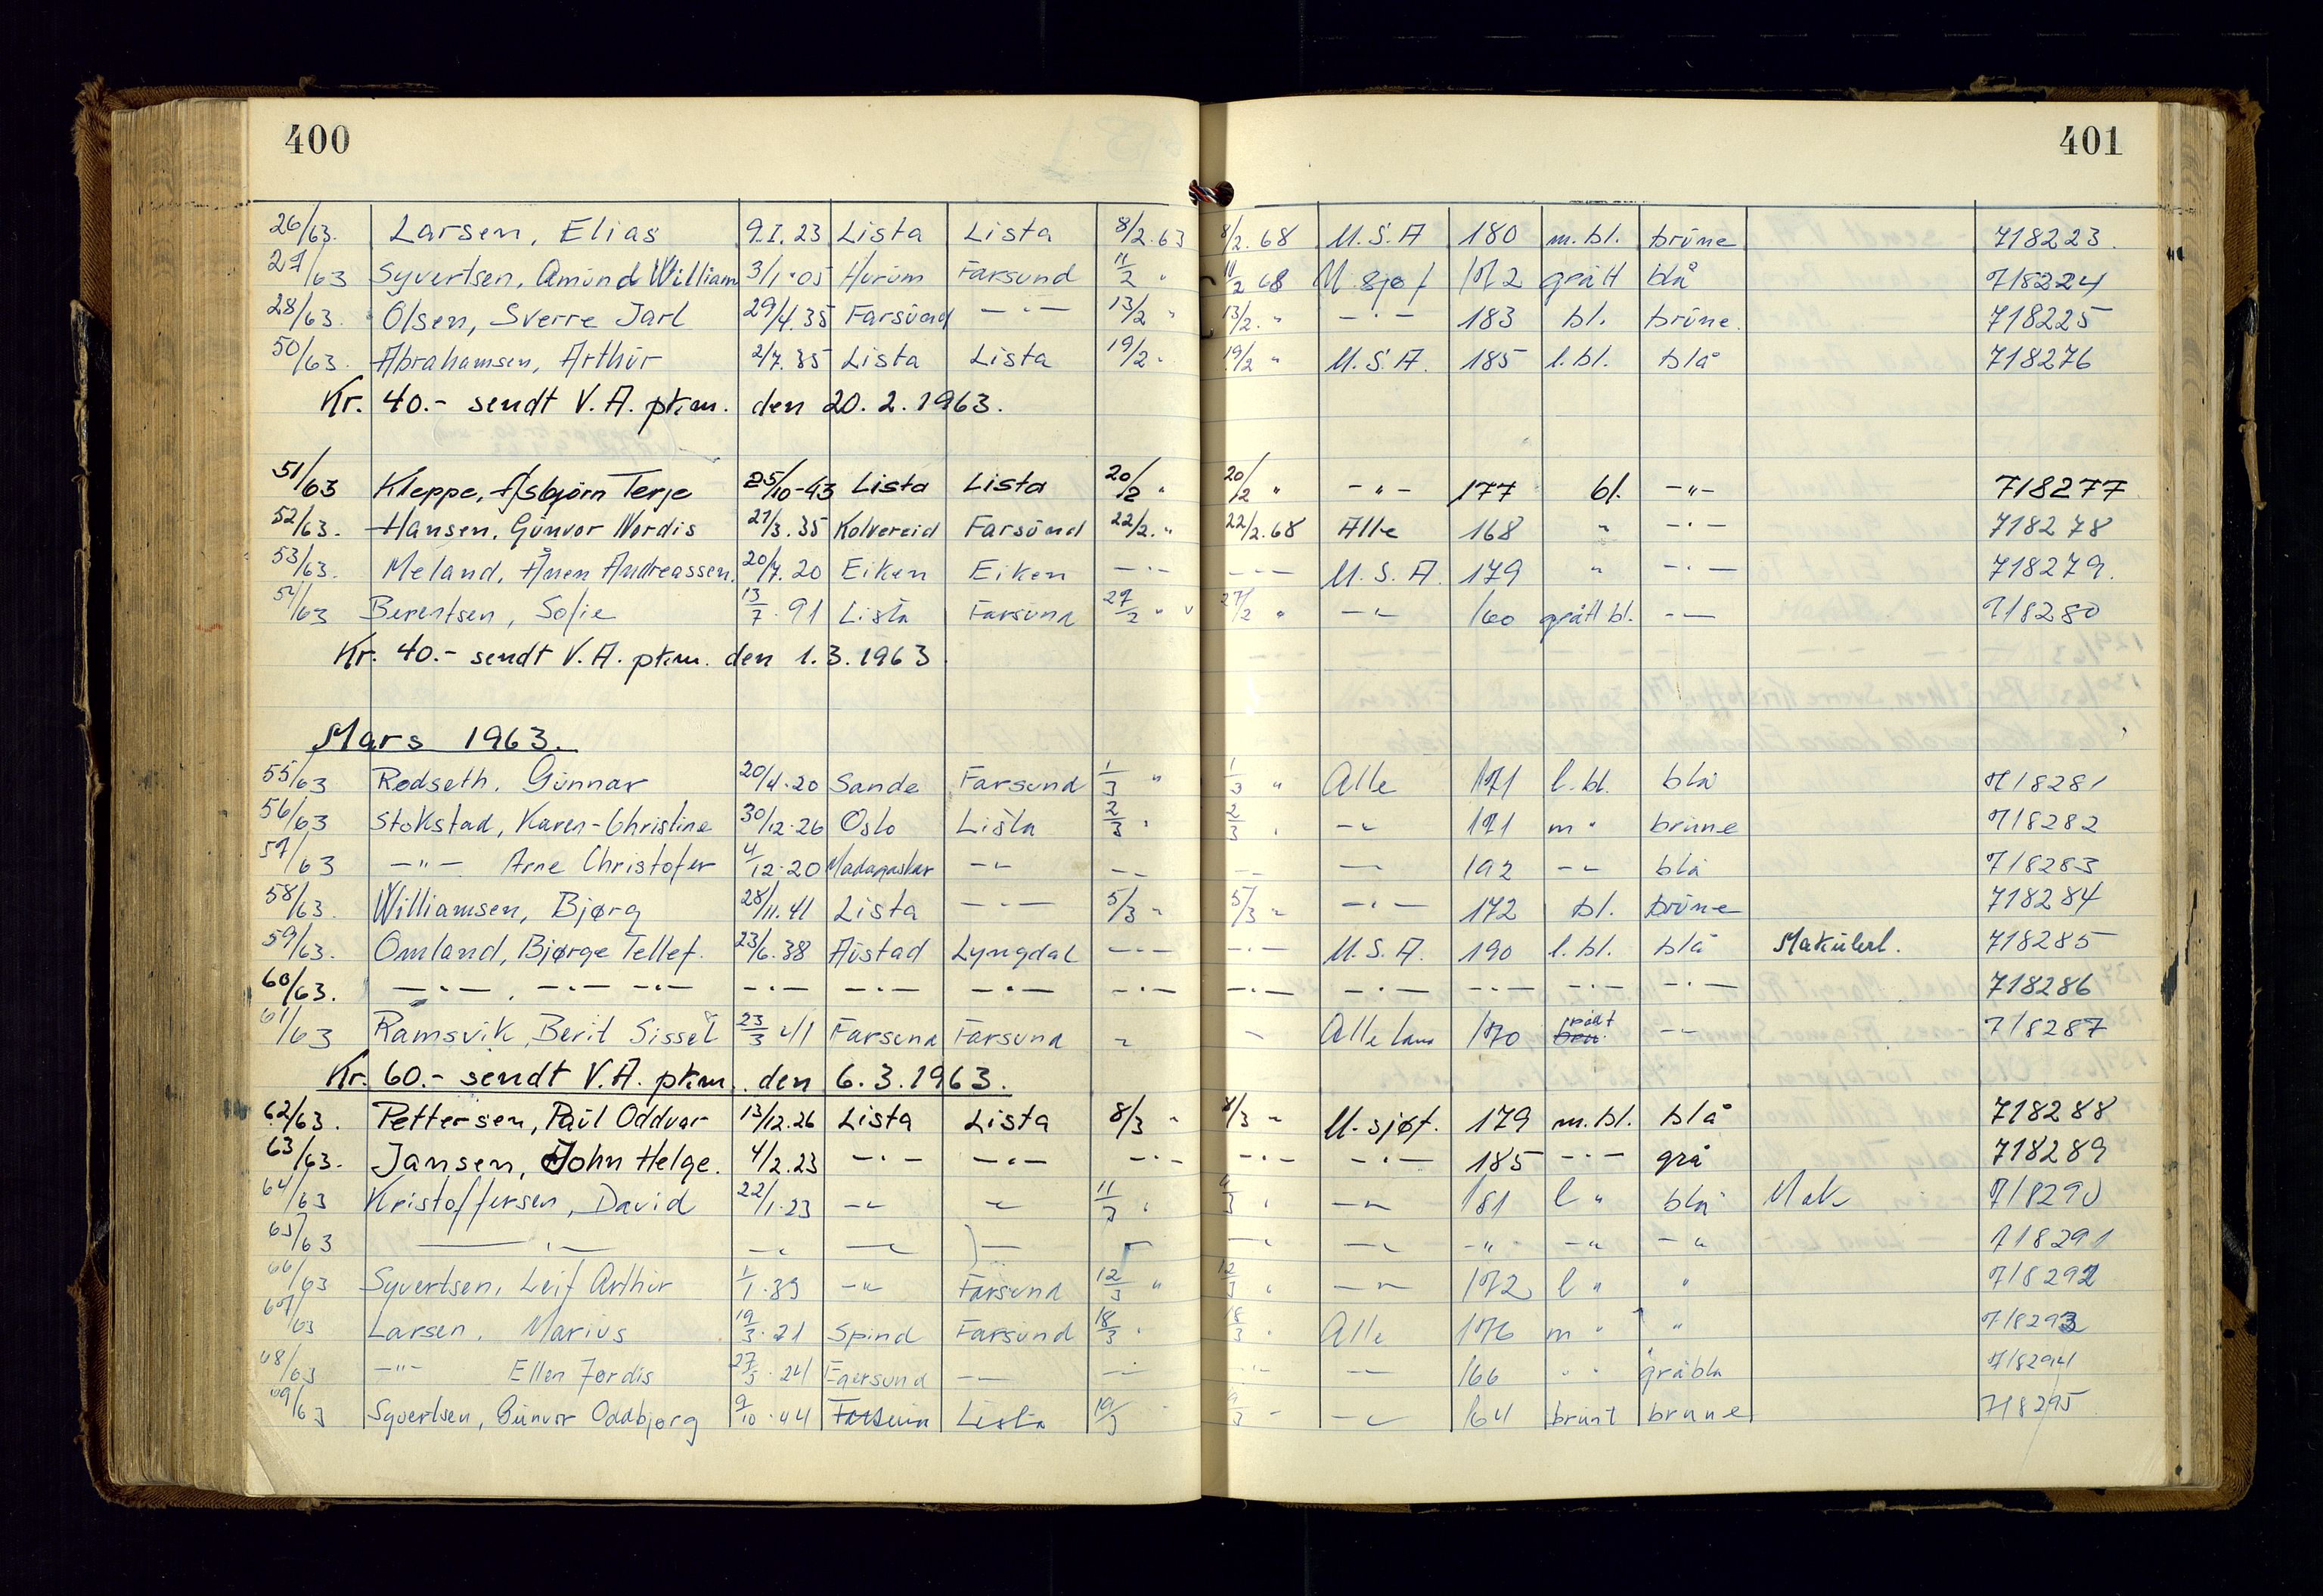 400
401
26/63. Larsen, Elias 9.I.23 Lista Lista 8/2.63 8/2.68 U.S.A 180 m.bl. brüne 718223.
27/63 Syvertsen, Amünd William 3/1.05 Hurüm Farsund 11/2 " 11/2 68 U. sjøf 172 grått blå 718224
28/63. Olsen, Sverre Jarl 29/4.35 Farsünd —"— 13/2 " 13/2. " —"— 183 bl. brüne. 718225
50/63. Abrahamsen, Arthür 2/7.35 Lista Lista 19/2 " 19/2 " U.S.A. 185 l.bl. blå 718276
Kr. 40.- sendt V.A. pkm. den 20.2.1963.
51/63 Kleppe, Asbjørn Terje 25/10-43 Lista Lista 20/2 " 20/2 " —"— 177 bl. —"— 718277
52/63. Hansen, Günvor Nordis 21/3.35 Kolvereid Farsünd 22/2. " 22/2.68 Alle 168 " —"— 718278
53/63. Meland, Ånen Andreassen. 20/7.20 Eiken Eiken —"— —"— U.S.A. 179 " —"— 718279.
54/63 Berentsen, Sofie 13/7.91 Lista Farsund 27/2 " 27/2 " —"— 160 grått bl. —"— 718280
Kr. 40.- sendt V.A. pkm. den 1.3.1963
Mars 1963.
55/63 Rødseth, Günnar 20/4.20 Sande Farsund 1/3 " 1/3 " Alle 171 l.bl. blå 718281
56/63 Stokstad, Karen-Christine 30/12.26 Oslo Lista 2/3 " 2/3 " —"— 171 m " brune 718282
57/63 —"— Arne Christofer 4/12.20 Madagaskar —"— —"— —"— —"— 192 —"— blå 718283
58/63. Williamsen, Bjørg 28/11.41 Lista —"— 5/3 " 5/3 " —"— 172 bl. brüne 718284
59/63. Omland, Bjørge Tellef. 23/6.38 Aüstad Lyngdal —"— —"— U.S.A. 190 l.bl. blå Makülert. 718285
60/63. —"— . —"— —"— —"— —"— —"— —"— —"— —"— —"— —"— —"— 718286
61/63 Ramsvik, Berit Sissel 23/3 41 Farsund Farsund " " Alle land 170 —"— 718287
Kr. 60.- sendt V.A. pkm. den 6.3.1963.
62/63. Pettersen, Paül Oddvar 13/12.26 Lista Lista 8/3 " 8/3 " U.sjøf. 179 m.bl. blå 718288
63/63. Jansen, John Helge. 4/2.23 —"— —"— —"— —"— —"— 185 —"— grå 718289
64/63 Kristoffersen, David 22/1.23 —"— " 11/3 " 11/3 " —"— 181 l " blå Mak 718290
65/63 —"— —"— —"— — —"— —"— —"— —"— —"— 718291
66/63 Syvertsen, Leif Arthur 1/1.39 —"— Farsund 12/3 " 12/3 " —"— 172 l " " 718292
67/63 Larsen, Marius 19/3.21 Spind Farsund 18/3 " 18/3 " Alle 176 m " " 718293
68/63 —"— Ellen Jordis 27/3.24 Egersund —"— —"— —"— —"— 166 " " gråblå 718294
69/63 Syvertsen, Günvor Oddbjørg 9/10.44 Lista 19/3 " 19/3 " —"— 164 brunt brune 718295